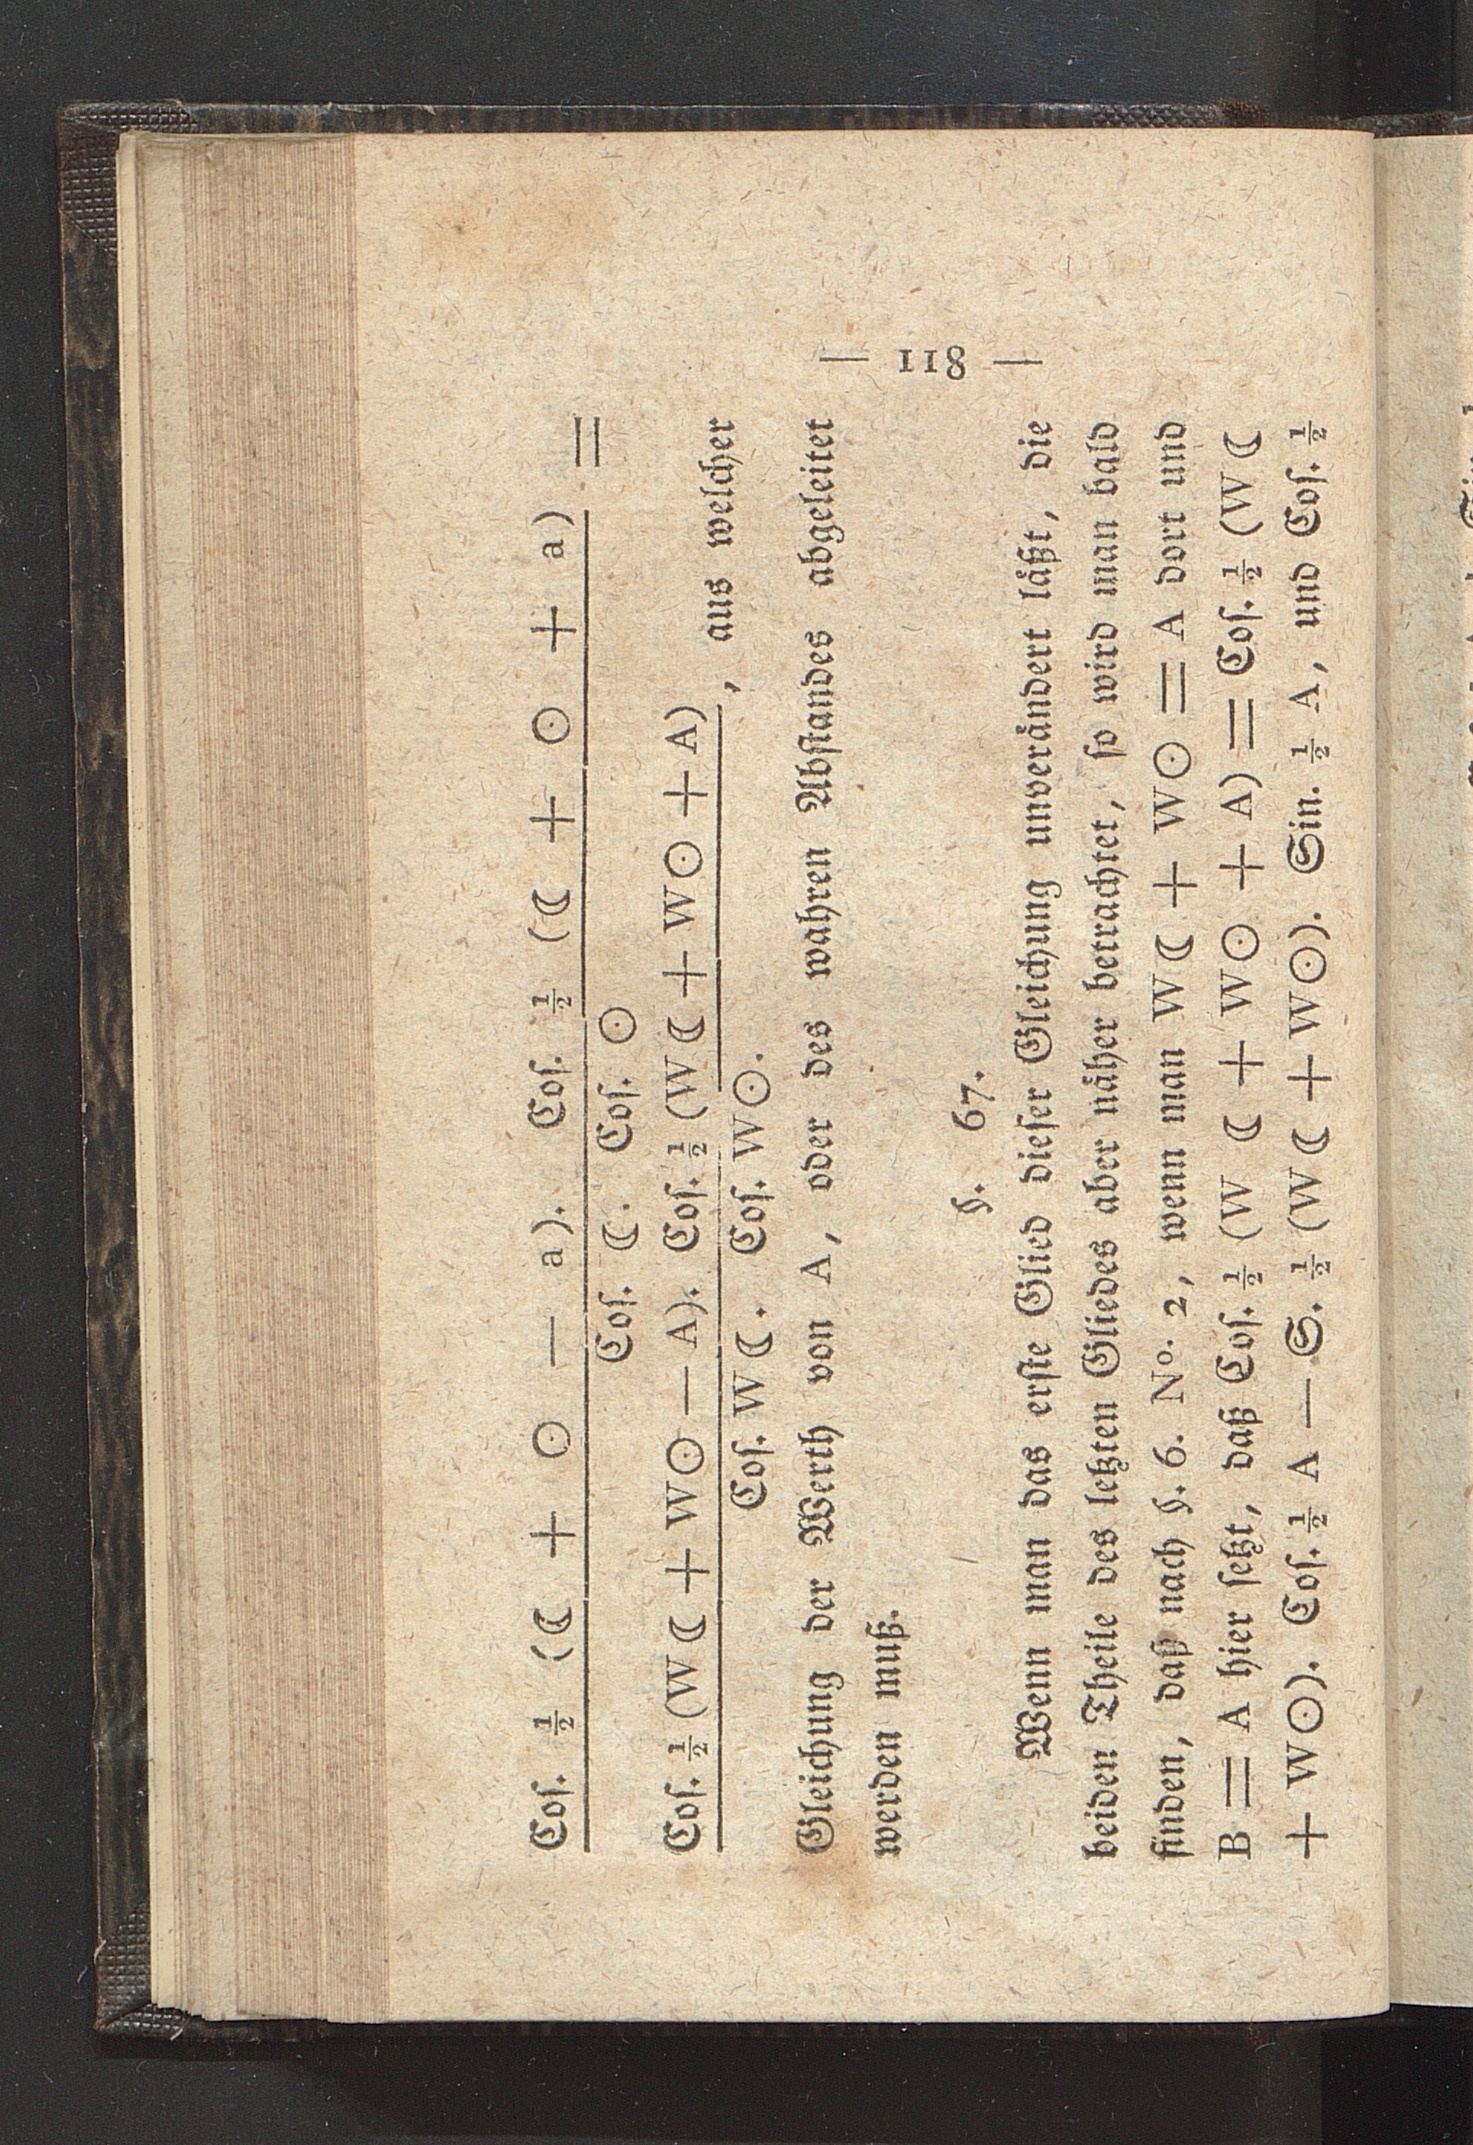 — 118 —
Coſ. ½ (☾ + ☉ — a). Coſ. ½ (☾ + ☉ + a) =
Coſ. ☾. Coſ. ☉
Coſ. ½ (W☾ + W☉ — A). Coſ. ½ (W☾ + W☉ + A)
Coſ. W☾. Coſ. W☉.
, aus welcher
Gleichung der Werth von A, oder des wahren Abſtandes abgeleitet
werden muß.
§. 67.
Wenn man das erſte Glied dieſer Gleichung unverändert läßt, die
beiden Theile des letzten Gliedes aber näher betrachtet, ſo wird man bald
finden, daß nach §. 6. Nº. 2, wenn man W☾ + W☉ = A dort und
B = A hier ſetzt, daß Coſ. ½ (W ☾ + W☉ + A) = Coſ. ½ (W☾
+ W☉). Coſ. ½ A — S. ½ (W☾ + W☉). Sin. ½ A, und Coſ. ½